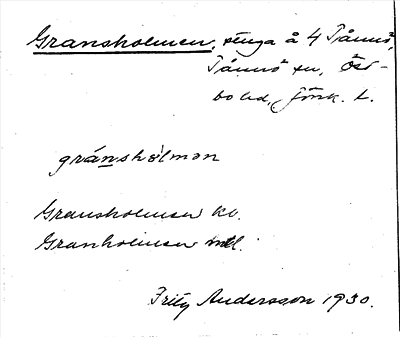 Gransholmen, sänga å 4 Tånnö,
Tånnö sn, Öst-
bo hd, Jönk. L.
gránshòlmən
Gransholmen kv.
Granholmen mtl.
Fritz Andersson 1930.